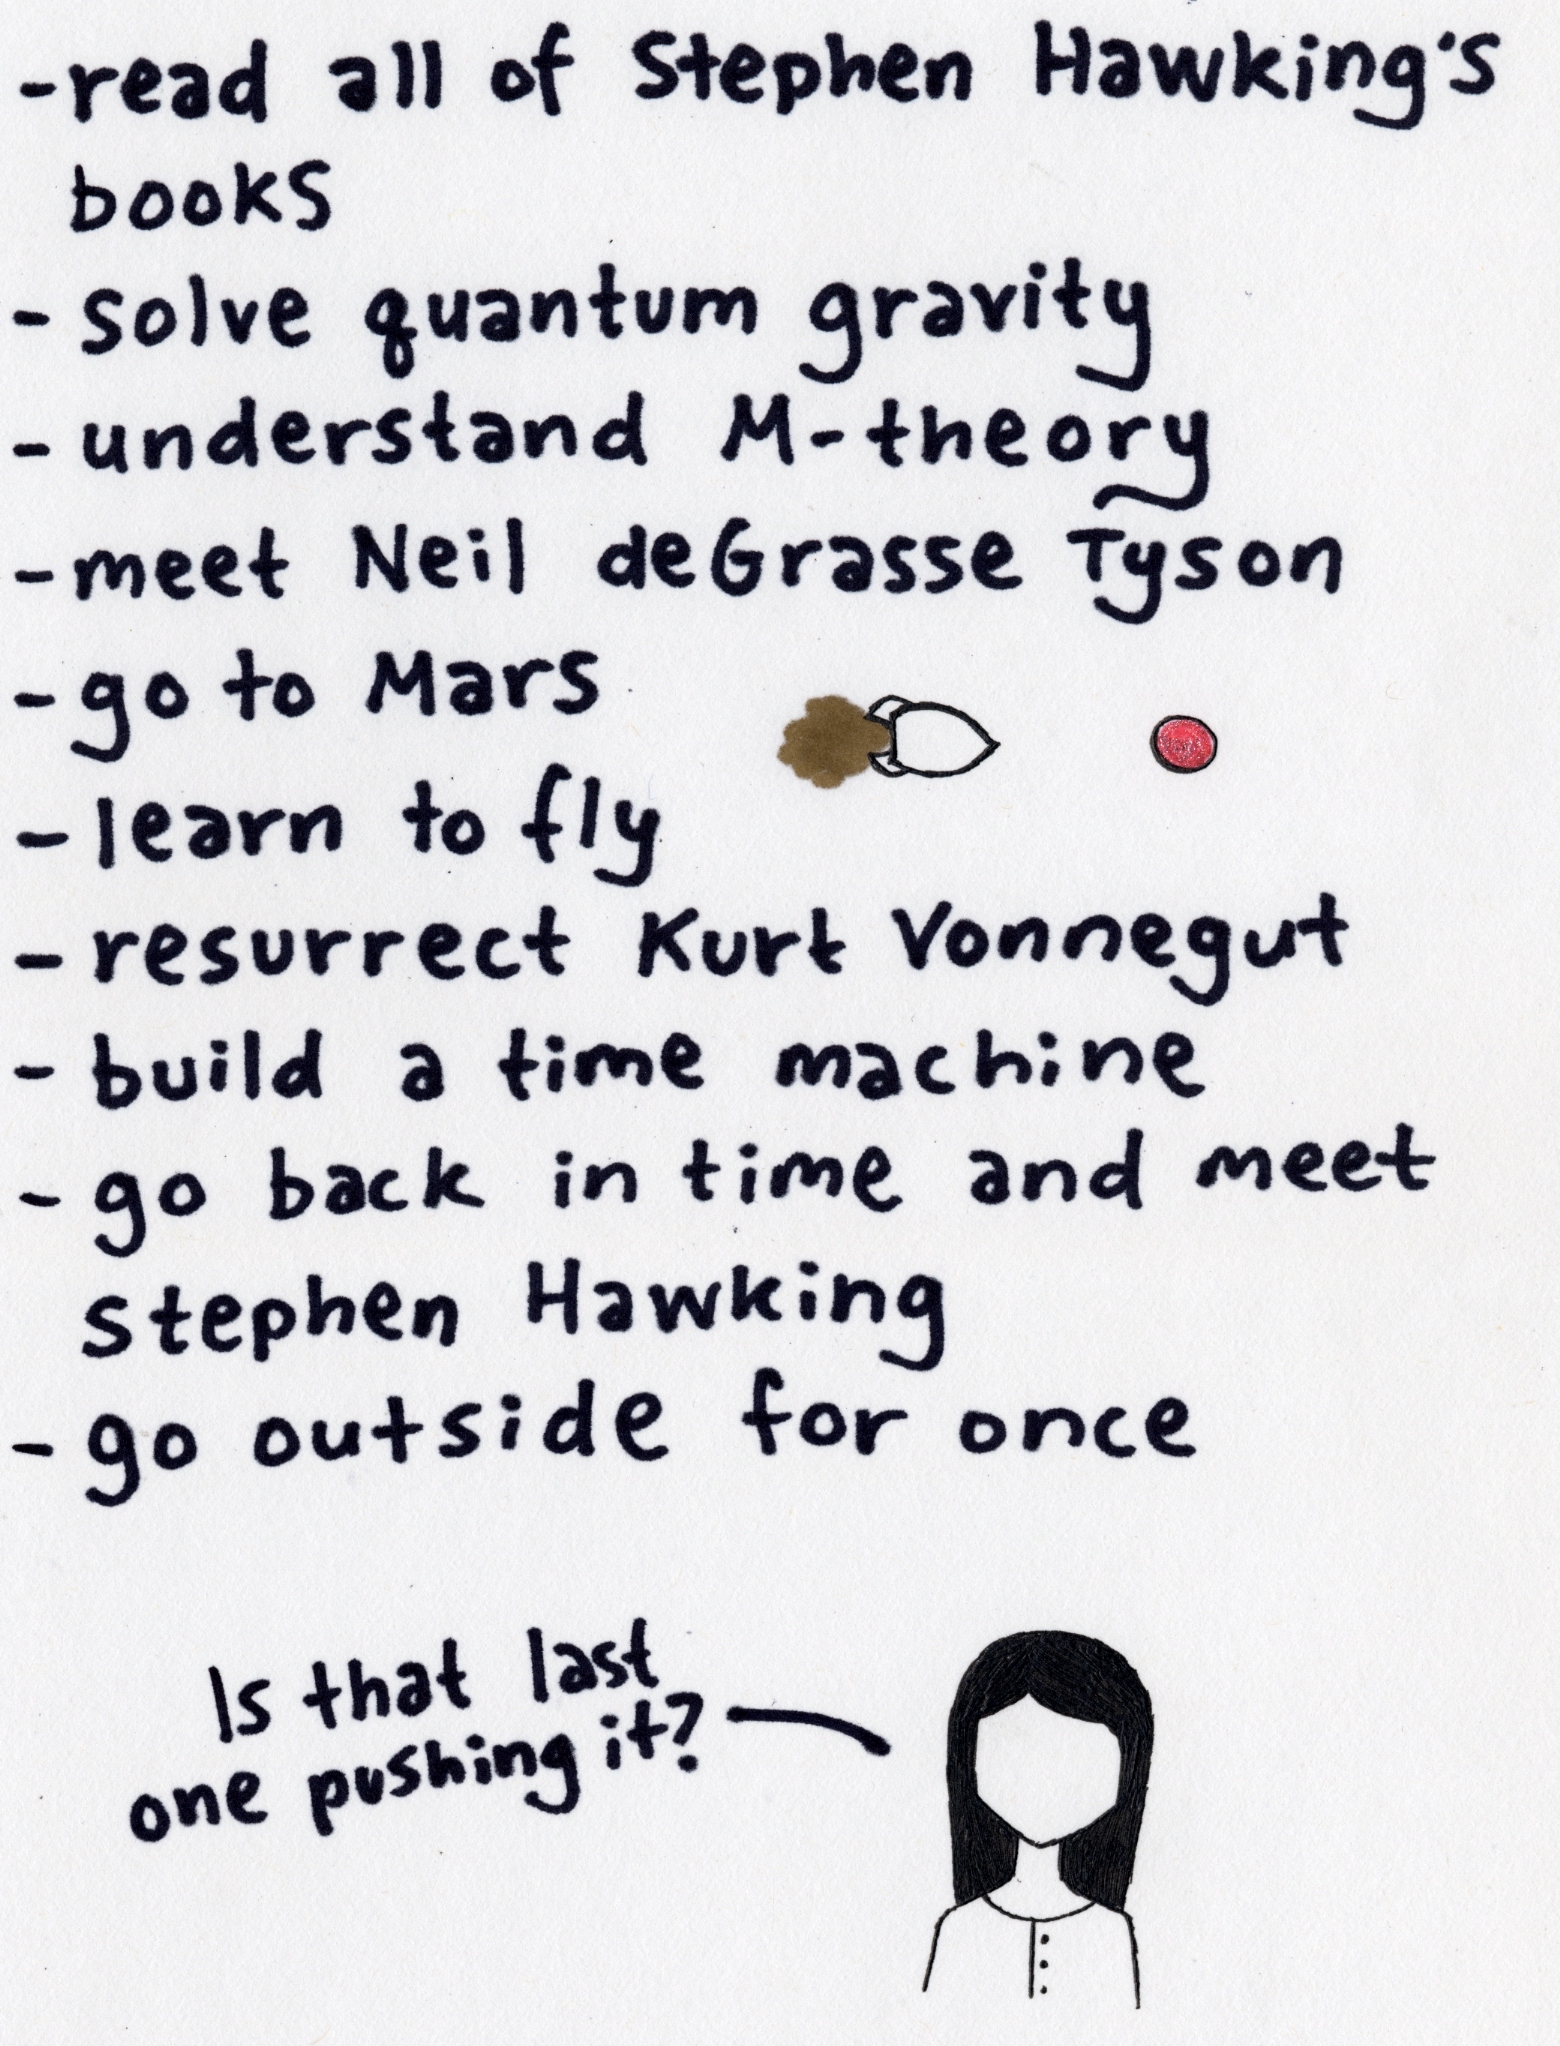 -read all of Stephen Hawking's
books
- solve quantum gravity
- understand M-theory
- meet Neil deGrasse Tyson
- go to Mars
- learn to fly
- resurrect Kurt Vonnegut
- build a time machine
- go back in time and meet
Stephen Hawking
- go outside for once
Is that last
one pushing it?